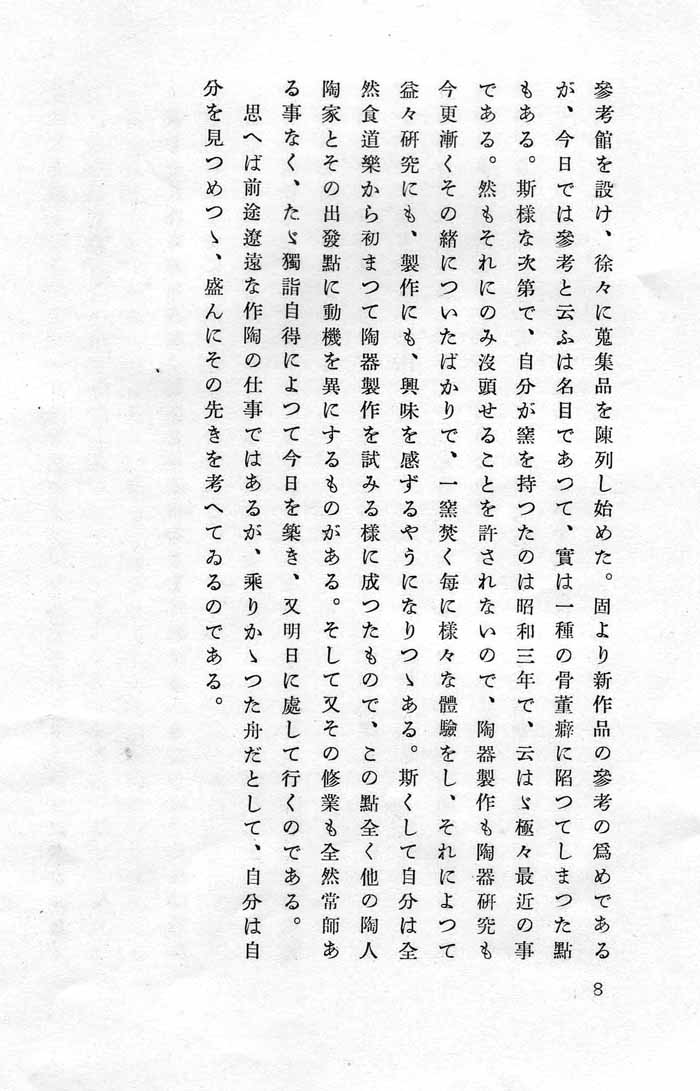 參考館を設け、徐々に蒐集品を陳列し始めた。固より新作品の參考の爲めである
が、今日では參考と云ふは名目であつて、實は一種の骨董癖に陷つてしまつた點
もある。斯樣な次第で、自分が窯を持つたのは昭和三年で、云はゞ極々最近の事
である。然もそれにのみ沒頭せることを許されないので、陶器製作も陶器硏究も
今更漸くその緖についたばかりで、一窯焚く每に樣々な體驗をし、それによつて
益々硏究にも、製作にも、興味を感ずるやうになりつゝある。斯くして自分は全
然食道樂から初まつて陶器製作を試みる樣に成つたもので、この點全く他の陶人
陶家とその出發點に動機を異にするものがある。そして又その修業も全然常師あ
る事なく、たゞ獨詣自得によつて今日を築き、又明日に處して行くのである。
思へば前途遼遠な作陶の仕事ではあるが、乘りかゝつた舟だとして、自分は自
分を見つめつゝ、盛んにその先きを考へてゐるのである。
8